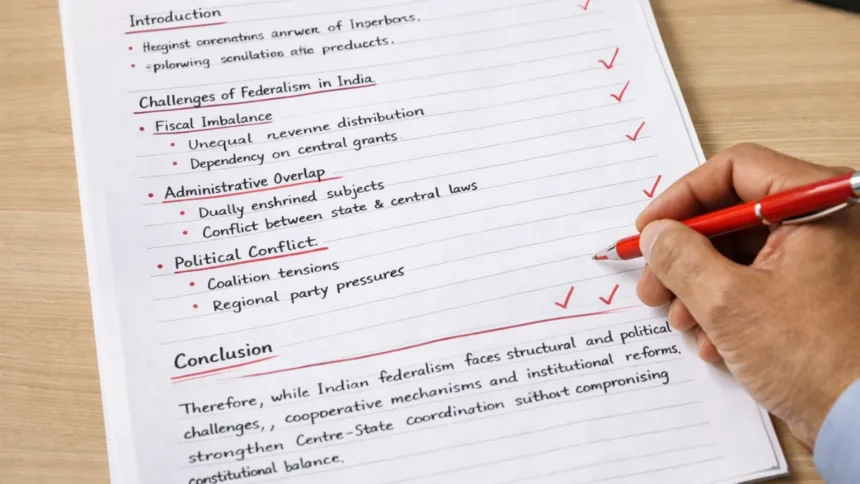 Introduction
• of
•
Challenges of Federalism in India.
• Fiscal Imbalance
• Unequal revenue distribution
• Dependency on central grants.
• Administrative Overlap
• Dually enshrined subjects
• Conflict between state & central laws
• Political Conflict.
• Coalition tensions
• Regional party pressures
Conclusion
Therefore, while Indian federalism faces structural and political
challenges, , cooperative mechanisms and institutional reforms.
strengthen Centre-State coordination suthort compromising
constitutional balance.